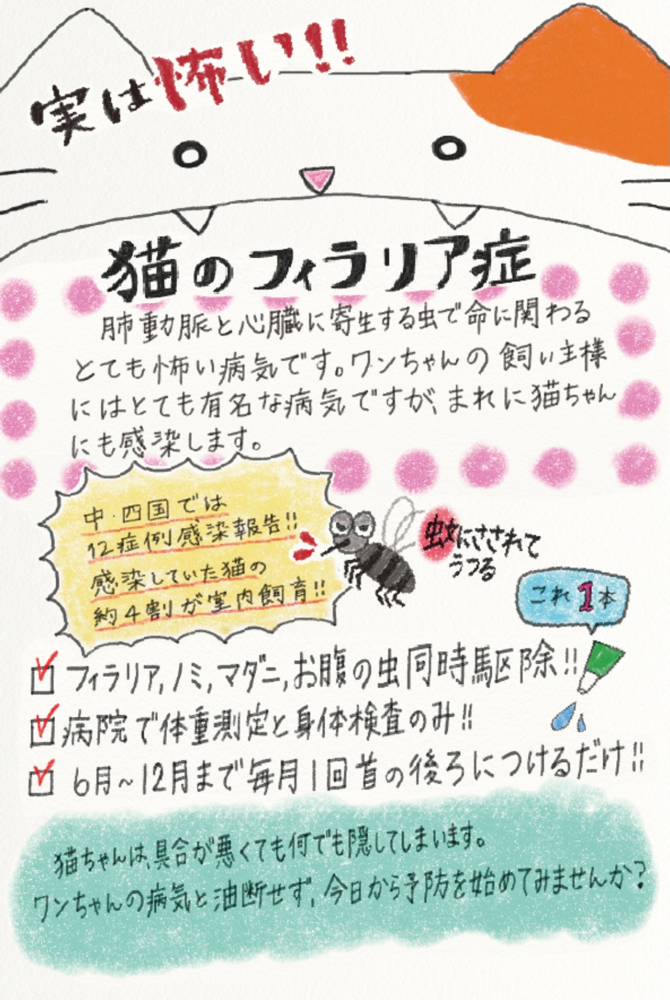 実は怖い!!
猫のフィラリア症
肺動脈と心臓に寄生する虫で命に関わる
とても怖い病気です。ワンちゃんの飼い主様
にはとても有名な病気ですが、まれに猫ちゃん
にも感染します。
中・四国では
12症例感染報告!!
感染していた猫の
約4割が室内飼育!!
蚊にさされて
うつる
これ1本
フィラリア,ノミ,マダニ,お腹の虫同時駆除!!
病院で体重測定と身体検査のみ!!
6月~12月まで毎月1回首の後ろにつけるだけ!!
猫ちゃんは、具合が悪くても何でも隠してしまいます。
ワンちゃんの病気と油断せず、今日から予防を始めてみませんか?